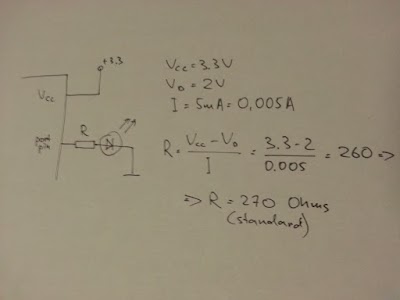 +3.3
Vcc
R
Vcc = 3.3V
VD = 2V
I = 5mA = 0,005A
R = (Vcc - VD) / I = (3.3 - 2) / 0.005 = 260 =>
=> R = 270 Ohms
(standard)